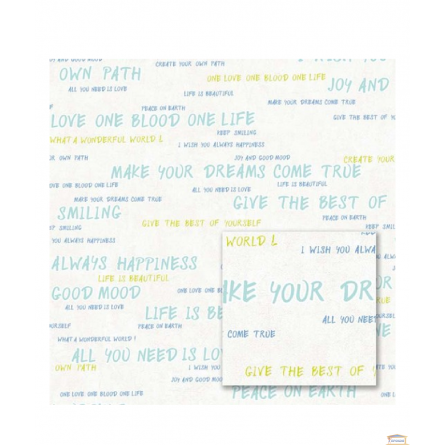 JOY AND GOOD MOOD
CREATE YOUR OWN PATH
I WISH YOU
OWN PATH
ONE LOVE ONE BLOOD ONE LIFE
JOY AND
ALL YOU NEED IS LOVE
LIFE IS BEAUTIFUL
MAKE YOUR DREAMS COME TRUE
PEACE ON EARTH
LOVE ONE BLOOD ONE LIFE
GIVE THE BEST OF
KEEP SMILING
WHAT A WONDERFUL WORLD !
I WISH YOU ALWAYS HAPPINESS
OWN PATH
JOY AND GOOD MOOD
CREATE YOUR
MAKE YOUR DREAMS COME TRUE
ONE LOVE ONE BLOOD ONE LIFE
ALL YOU NEED IS LOVE
LIFE IS BEAUTIFUL
MAKE YOUR DREAMS COME TRUE
GIVE THE BEST OF
SMILING
PEACE ON EARTH
GIVE THE BEST OF YOURSELF
SMILING
KEEP
WORLD !
YOU ALWAYS HAPPINESS
I WISH YOU
ALWAYS HAPPINESS
LIFE IS BEAUTIFUL
KE YOUR DR
GOOD MOOD
ONE LOVE ONE
ALL YOU NEED IS LOVE
LIFE IS BE
ALL YOU NEE
YOURSELF
PEACE ON EARTH
COME TRUE
WHAT A WONDERFUL WORLD !
ALL YOU NEED IS LO
OWN PATH
I WISH
GIVE THE BEST OF Y
JOY AND GOOD MOOD
ONE LOVE ONE BLOOD ONE LIFE
PEACE ON EARTH